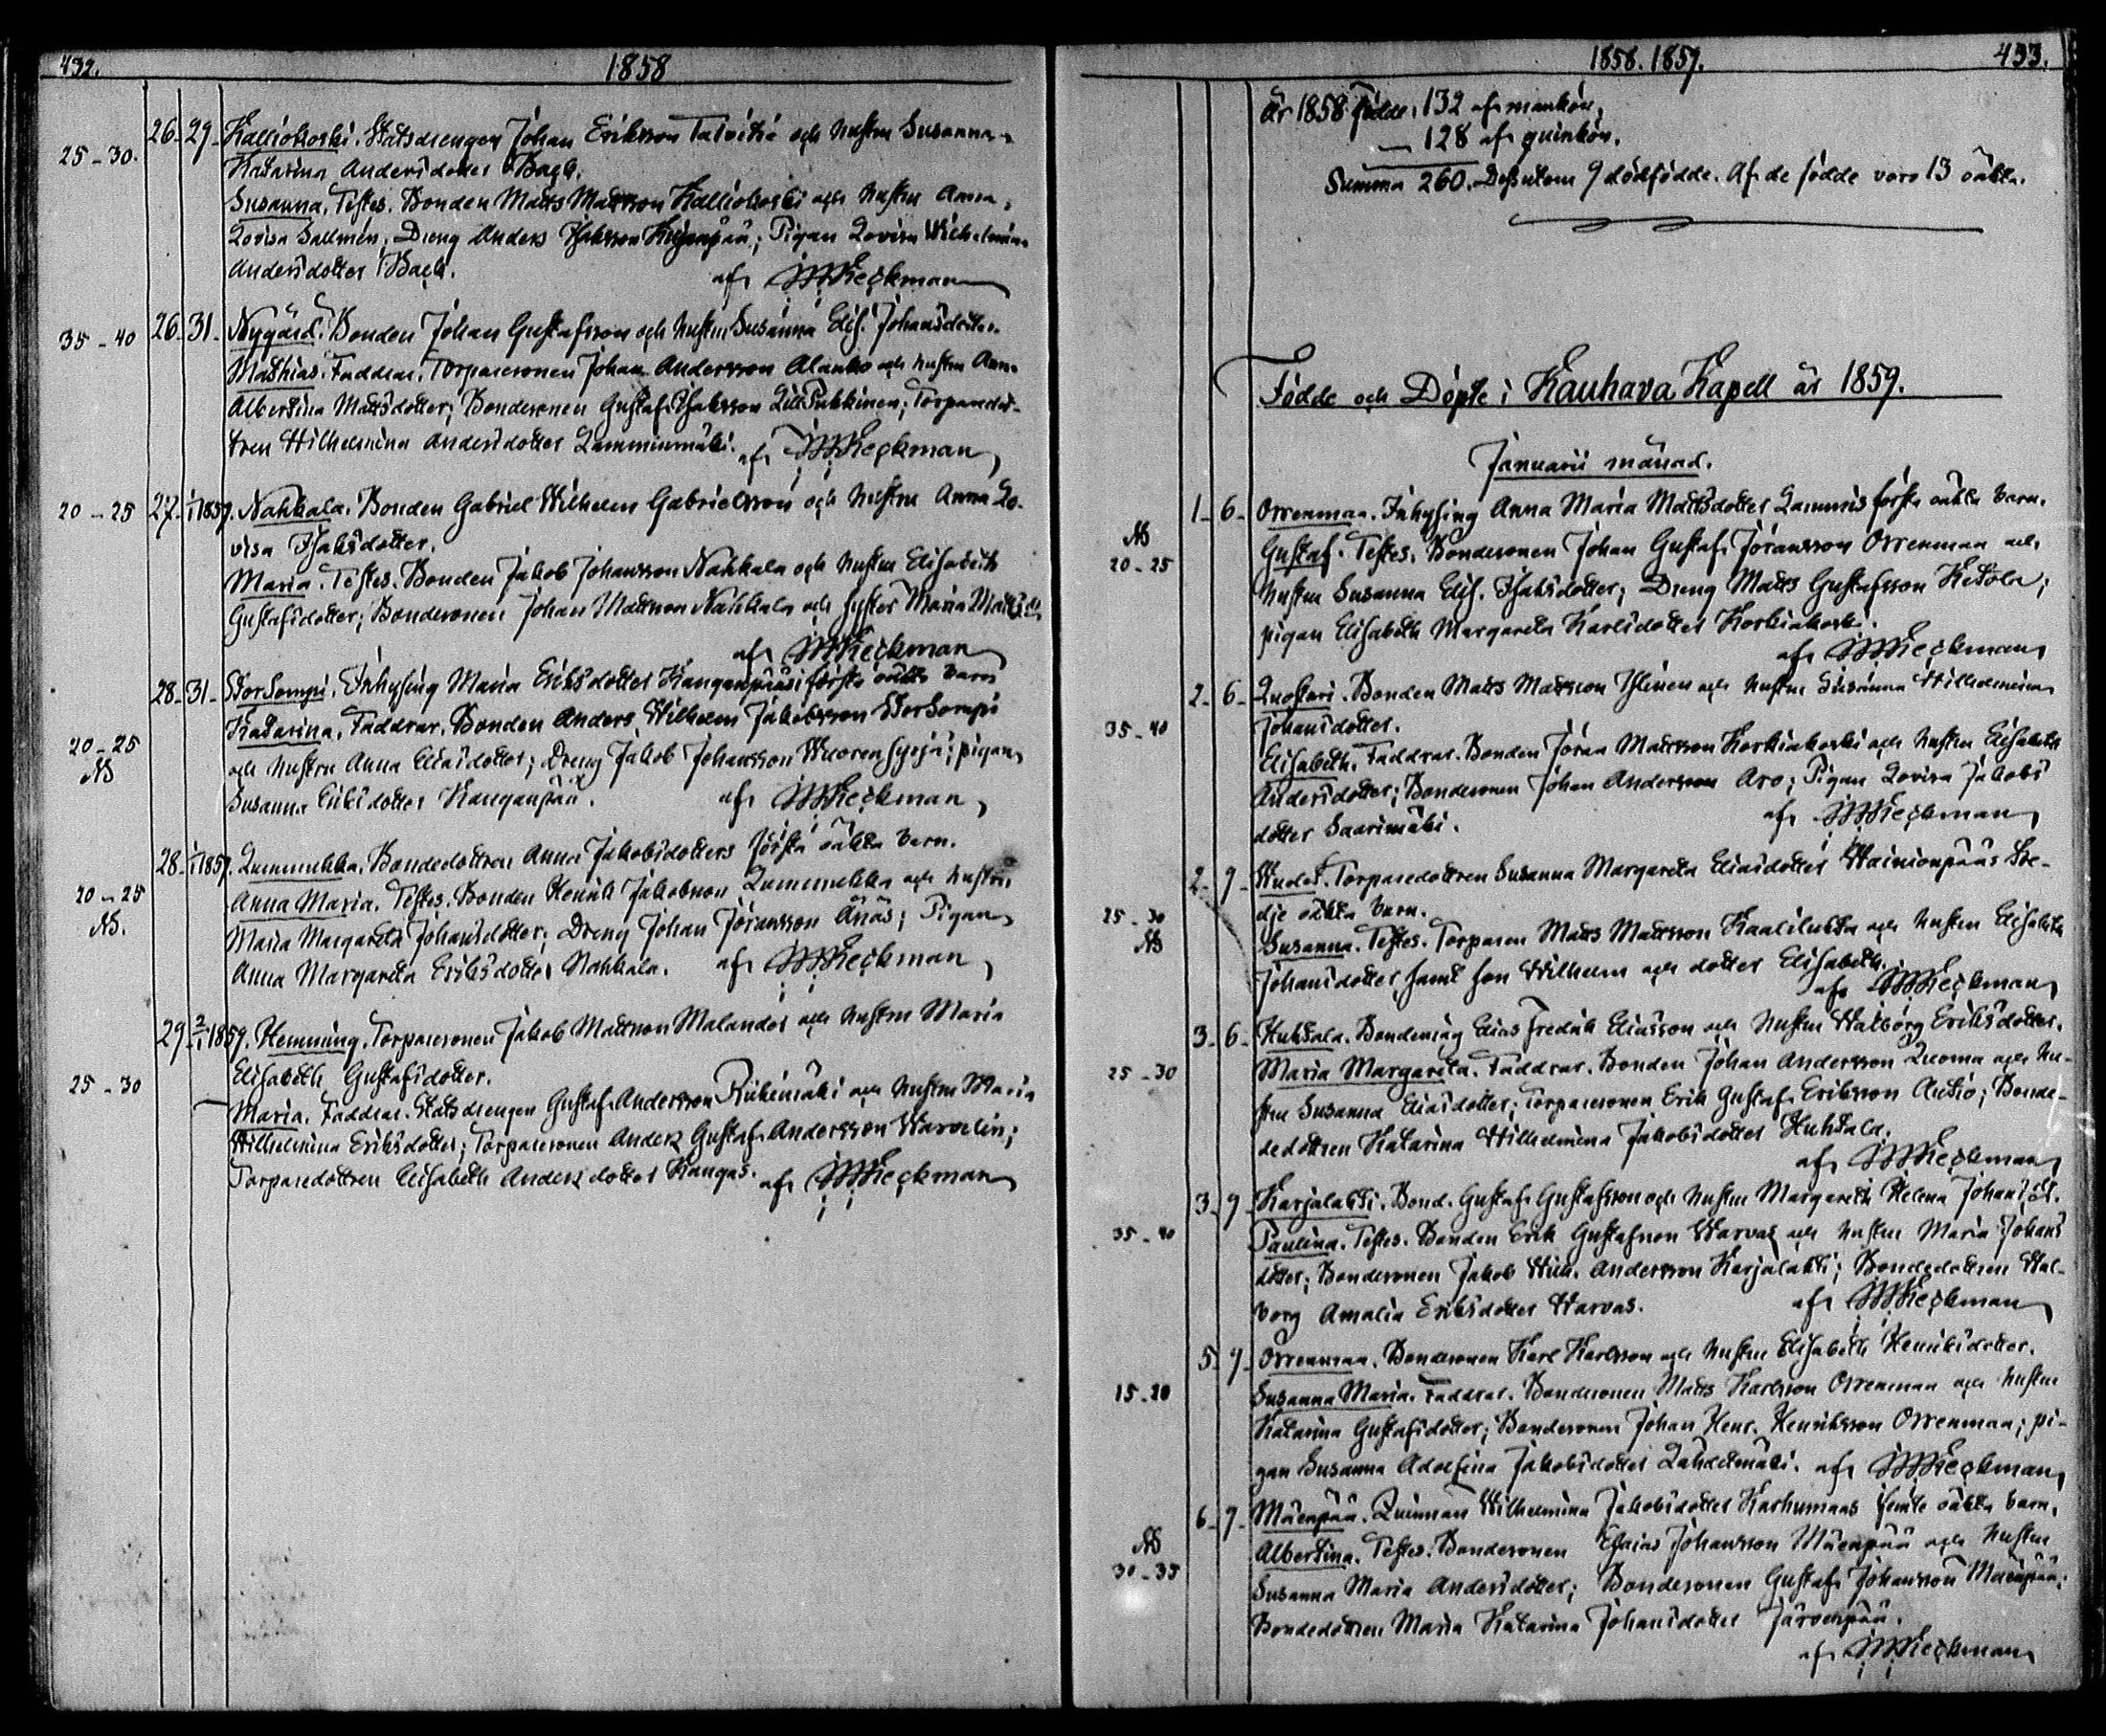 432. 1858
26. 29. Kalliokoski. Statsdrengen Johan Eriksson Talvitie och hustru Susanna
25-30. Katarina Andersdotter Back.
Susanna. Testes. Bonden Matts Mattsson Kalliokoski och hustru Anna
Lovisa Sallmén; Dreng Anders Isaksson Kujanpää; Pigan Lovisa Wilhelmina
Andersdotter Back. af
26. 31. Nygård. Bonden Johan Gustafsson och hustru Susanna Elis. Johansdotter.
35-40 Mathias. Faddrar. Torparesonen Johan Andersson Alanko och hustru Anna
Albertina Mattsdotter; Bondesonen Gustaf Isaksson Lill Pukkinen; Torparedot-
tren Wilhelmina Andersdotter Lamminmäki. af
20-25 27. 1/1 1859. Nahkala. Bonden Gabriel Wilhelm Gabrielsson och hustru Anna Lo-
visa Isaksdotter.
Maria. Testes. Bonden Jakob Johansson Nahkala och hustru Elisabeth
Gustafsdotter; Bondesonen Johan Mattsson Nahkala och syster Maria Mattsd.
af
28. 31. Torsompi. Inhysing Maria Eriksdotter Kanganpääs första oäkta barn
Katarina. Faddrar. Bonden Anders Wilhelm Jakobsson Torsompi
20-25 och hustru Anna Eliasdotter; Dreng Jakob Johansson Wuorensyrjä; pigan
NB Susanna Eriksdotter Kanganpää. af
28. 1/1 1859. Lummukka. Bondedottren Anna Jakobsdotters första oäkta barn.
20-25 Anna Maria. Testes. Bonden Henrik Jakobsson Lummukka och hustru
NB. Maria Margareta Johansdotter; Dreng Johan Jöransson Änäs; Pigan
Anna Margareta Eriksdotter Nahkala. af
29. 2/1 1859. Hemming. Torparesonen Jakob Mattsson Malander och hustru Maria
Elisabeth Gustafsdotter.
25-30 Maria. Faddrar. Statsdrengen Gustaf Andersson Riihimäki och hustru Maria
Wilhelmina Eriksdotter; Torparesonen Anders Gustaf Andersson Warvelin;
Torparedottren Elisabeth Andersdotter Kangas. af
1858. 1859. 433.
År 1858 födde, 132 af mankön,
— 128 af quinkön.
Summa 260. Dessutom 9 dödfödde. Af de födde voro 13 oäkta.
Födde och Döpte i Kauhava Kapell år 1859.
Januarii månad.
1. 6. Orrenmaa. Inhysing Anna Maria Mattsdotter Lammis första oäkta barn.
NB Gustaf. Testes. Bondesonen Johan Gustaf Jöransson Orrenmaa och
20-25 hustru Susanna Elis. Isaksdotter; Dreng Matts Gustafsson Ketola;
pigan Elisabeth Margareta Karlsdotter Korkiakoski.
af
2. 6. Luostari. Bonden Matts Mattsson Ylinen och hustru Susanna Wilhelmina
35-40 Johansdotter.
Elisabeth. Faddrar. Bonden Jöran Mattsson Korkiakoski och hustru Elisabeth
Andersdotter; Bondesonen Johan Andersson Aro; Pigan Lovisa Jakobs
dotter Saarimäki. af
2. 9. Torparedottren Susanna Margareta Eliasdotter Wainionpääs tre-
25-30 dje oäkta barn.
NB Susanna. Testes. Torparen Matts Mattsson Kaaliluhta och hustru Elisabeth
Johansdotter, samt son Wilhelm och dotter Elisabeth.
af
3. 6. Huhtala. Bondemåg Elias Fredrik Eliasson och hustru Walborg Eriksdotter.
25-30 Maria Margareta. Faddrar. Bonden Johan Andersson Luoma och hu-
stru Susanna Eliasdotter; Torparesonen Erik Gustaf Eriksson Autio; Bonde-
dottren Katarina Wilhelmina Jakobsdotter Huhtala.
af
3. 9. Karjalahti. Bond. Gustaf Gustafsson och hustru Margareta Helena Johansd.
35-40 Paulina. Testes. Bonden Erik Gustafsson Warvas och hustru Maria Johans
dotter; Bondesonen Jakob Wilh. Andersson Karjalahti; Bondedottren Wal-
borg Amalia Eriksdotter Warvas. af
5. 9. Orrenmaa. Bondesonen Karl Karlsson och hustru Elisabeth Henriksdotter.
15-20 Susanna Maria. Faddrar. Bondesonen Matts Karlsson Orrenmaa och hustru
Katarina Gustafsdotter; Bondesonen Johan Henr. Henriksson Orrenmaa; pi-
gan Susanna Adolfina Jakobsdotter Lahdetmäki. af
6. 9. Mäenpää. Quinnan Wilhelmina Jakobsdotter Karhumaas femte oäkta barn.
NB Albertina. Testes. Bondesonen Esaias Johansson Mäenpää och hustru
30-35 Susanna Maria Andersdotter; Bondesonen Gustaf Johansson Mäenpää;
Bondedottren Maria Katarina Johansdotter Järvenpää.
af